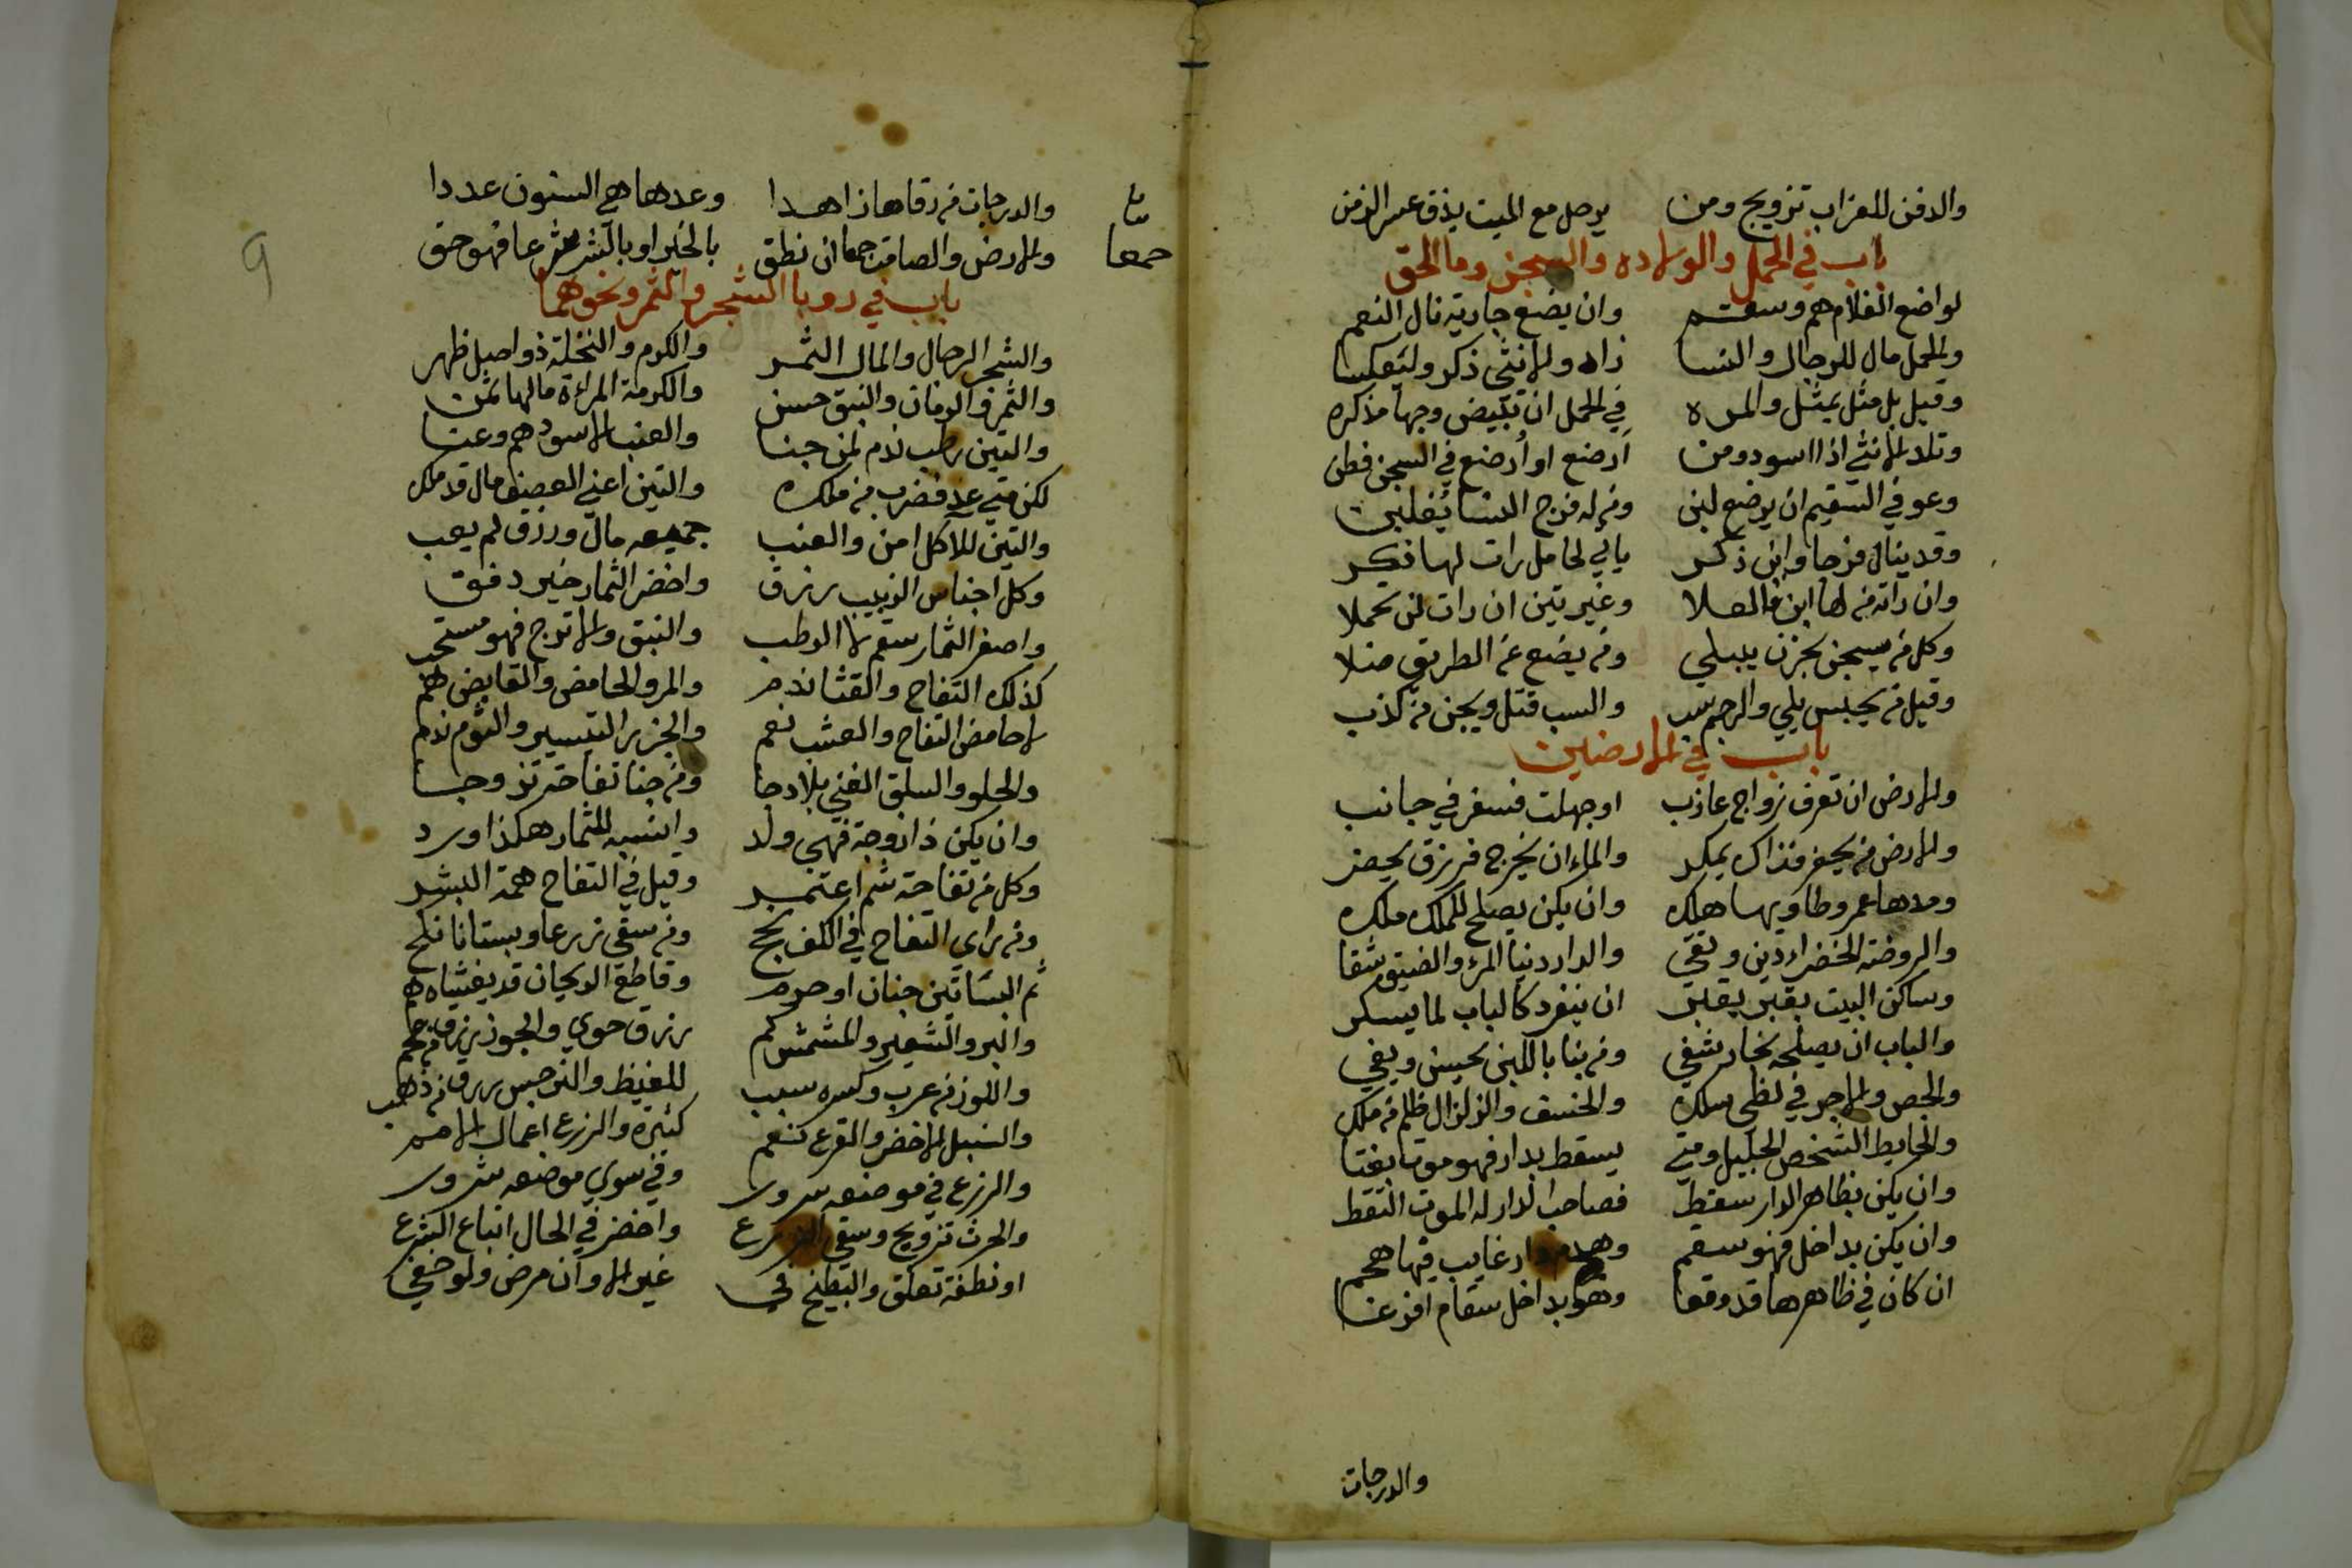 والدفن للعزاب تزويج ومن يرحل مع الميت يذق عسر الزمن
باب في الحمل والولاده والسجن وما الحق
لواضع الغلام هم وسقم وان يضع جارية نال النعم
والحمل مال للرجال والنسا زاد والانثى ذكر ولتعكسا
وقيل بل مثل بمثل والمره في الحمل ان تبيض وجها مذكره
وتلد الانثي اذا اسود ومن ارضع او أرضع في السجن فطن
وعوفي السقيم ان يرضع لبن ومن له فرج النسا يغلبن
وقد ينال فرحا وابن ذكر ياتي لحامل رات لها ذكر
وان راته من لها ابن فالعلا وغير تين ان رات لن تحملا
وكل من يسجن بحزن يبتلي ومن يضع عن الطريق ضلا
وقيل من يحبس يلي والرجم سب والسب قتل ويجن من كذب
باب في الارضين
والارض ان تعرف زواج عازب او جهلت فسفر في جانب
والارض من يحفر فذاك يمكر والماء ان يخرج فرزق يحضر
ومدها عمر وطاويها هلك وان يكن يصلح للملك ملك
والروضة الخضراء دين وتقي والدار دنيا المرء والضيق شقا
وساكن البيت بقبر يقبر ان ينفرد كالباب لما يسكر
والباب ان يصلحه نجار شفي ومن بنا باللبن محسن ويفي
والجص والاجر في لظى سلك والخسف والزلزال ظلم من ملك
والحايط الشخص الجليل ومتي يسقط بدار فهو موت بغتا
وان يكن بظاهر الدار سقط فصاحب الدار له الموت التقط
وان يكن بداخل فهو سقم وهدم دار غايب فيها هجم
ان كان في ظاهرها قد وقعا وهو بداخل سقام افزعا
والدرجات
والدرجات من رقاها زاهدا وعدها هي السنون عددا
والارض والصامت جمعا ان نطق بالخير او بالشر شرعا فهو حق
جمعا
باب في رويا الشجر والثمر ونحوهما
والشجر الرجال والمال الثمر والكرم والنخلة ذو اصل ظهر
والتمر والرمان والنبق حسن والكرمة المراة مالها ثمن
والتين رطب ندم لمن جنا والعنب الاسود هم وعنا
لكن متي عد فضرب من ملك والتين اعني العصيف مال قد ملك
والتين للآكل امن والعنب جميعه مال ورزق لم يعب
وكل اجناس الزبيب رزق واخضر الثمار خير دفق
واصفر الثمار سقم لا الرطب والنبق والاترج فهو مستحب
كذلك التفاح والقثا ندم والمر والحامض والقابض هم
لا حامض التفاح والعشب نعم والجزر التيسير والثوم ندم
والحلو والسلق الغني بلا رجا ومن جنا تفاحة تزوجا
وان يكن ذا زوجة فهي ولد وانسبه للثمار هكذا ورد
وكل من تفاحة شم اعتمر وقيل في التفاح همة البشر
ومن راي التفاح في الكف نجح ومن سقي زرعا وبستانا نكح
ثم البساتين جنان او حرم وقاطع الريحان قد يغشاه هم
والبر والشعير والمشمش كم رزق حوي والجوز يرزق من عجم
واللوز من عرب وكسره سبب للغيظ والنرجس يرزق من ذهب
والسنبل الاخضر والقرع كنعم كثيرة والزرع اعمال الامم
والزرع في موضعه سرور وفي سوي موضعه شرور
والحرث تزويج وسقي الزرع واخضر في الحال اتباع الشرع
او نطفة تعلق والبطيخ في غير الاوان مرض ولو خفي